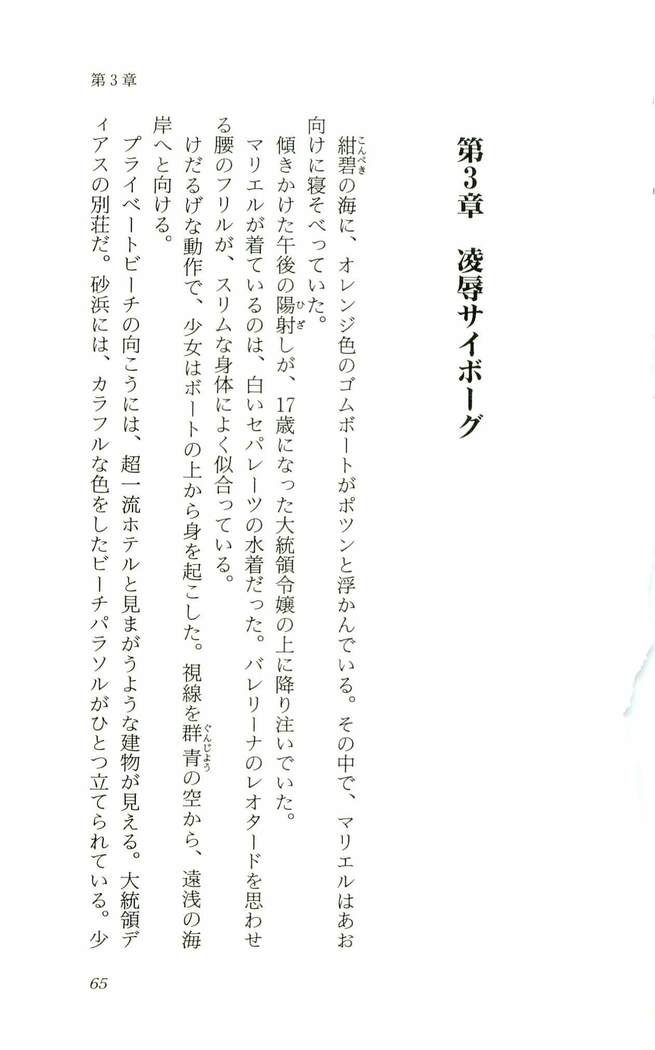 第3章
第3章　凌辱サイボーグ
こんぺき
紺碧の海に、オレンジ色のゴムボートがポツンと浮かんでいる。その中で、マリエルはあお
向けに寝そべっていた。
ひざ
傾きかけた午後の陽射しが、17歳になった大統領令嬢の上に降り注いでいた。
マリエルが着ているのは、白いセパレーツの水着だった。バレリーナのレオタードを思わせ
る腰のフリルが、スリムな身体によく似合っている。
ぐんじょう
けだるげな動作で、少女はボートの上から身を起こした。視線を群青の空から、遠浅の海
岸へと向ける。
プライベートビーチの向こうには、超一流ホテルと見まがうような建物が見える。大統領デ
ィアスの別荘だ。砂浜には、カラフルな色をしたビーチパラソルがひとつ立てられている。少
65